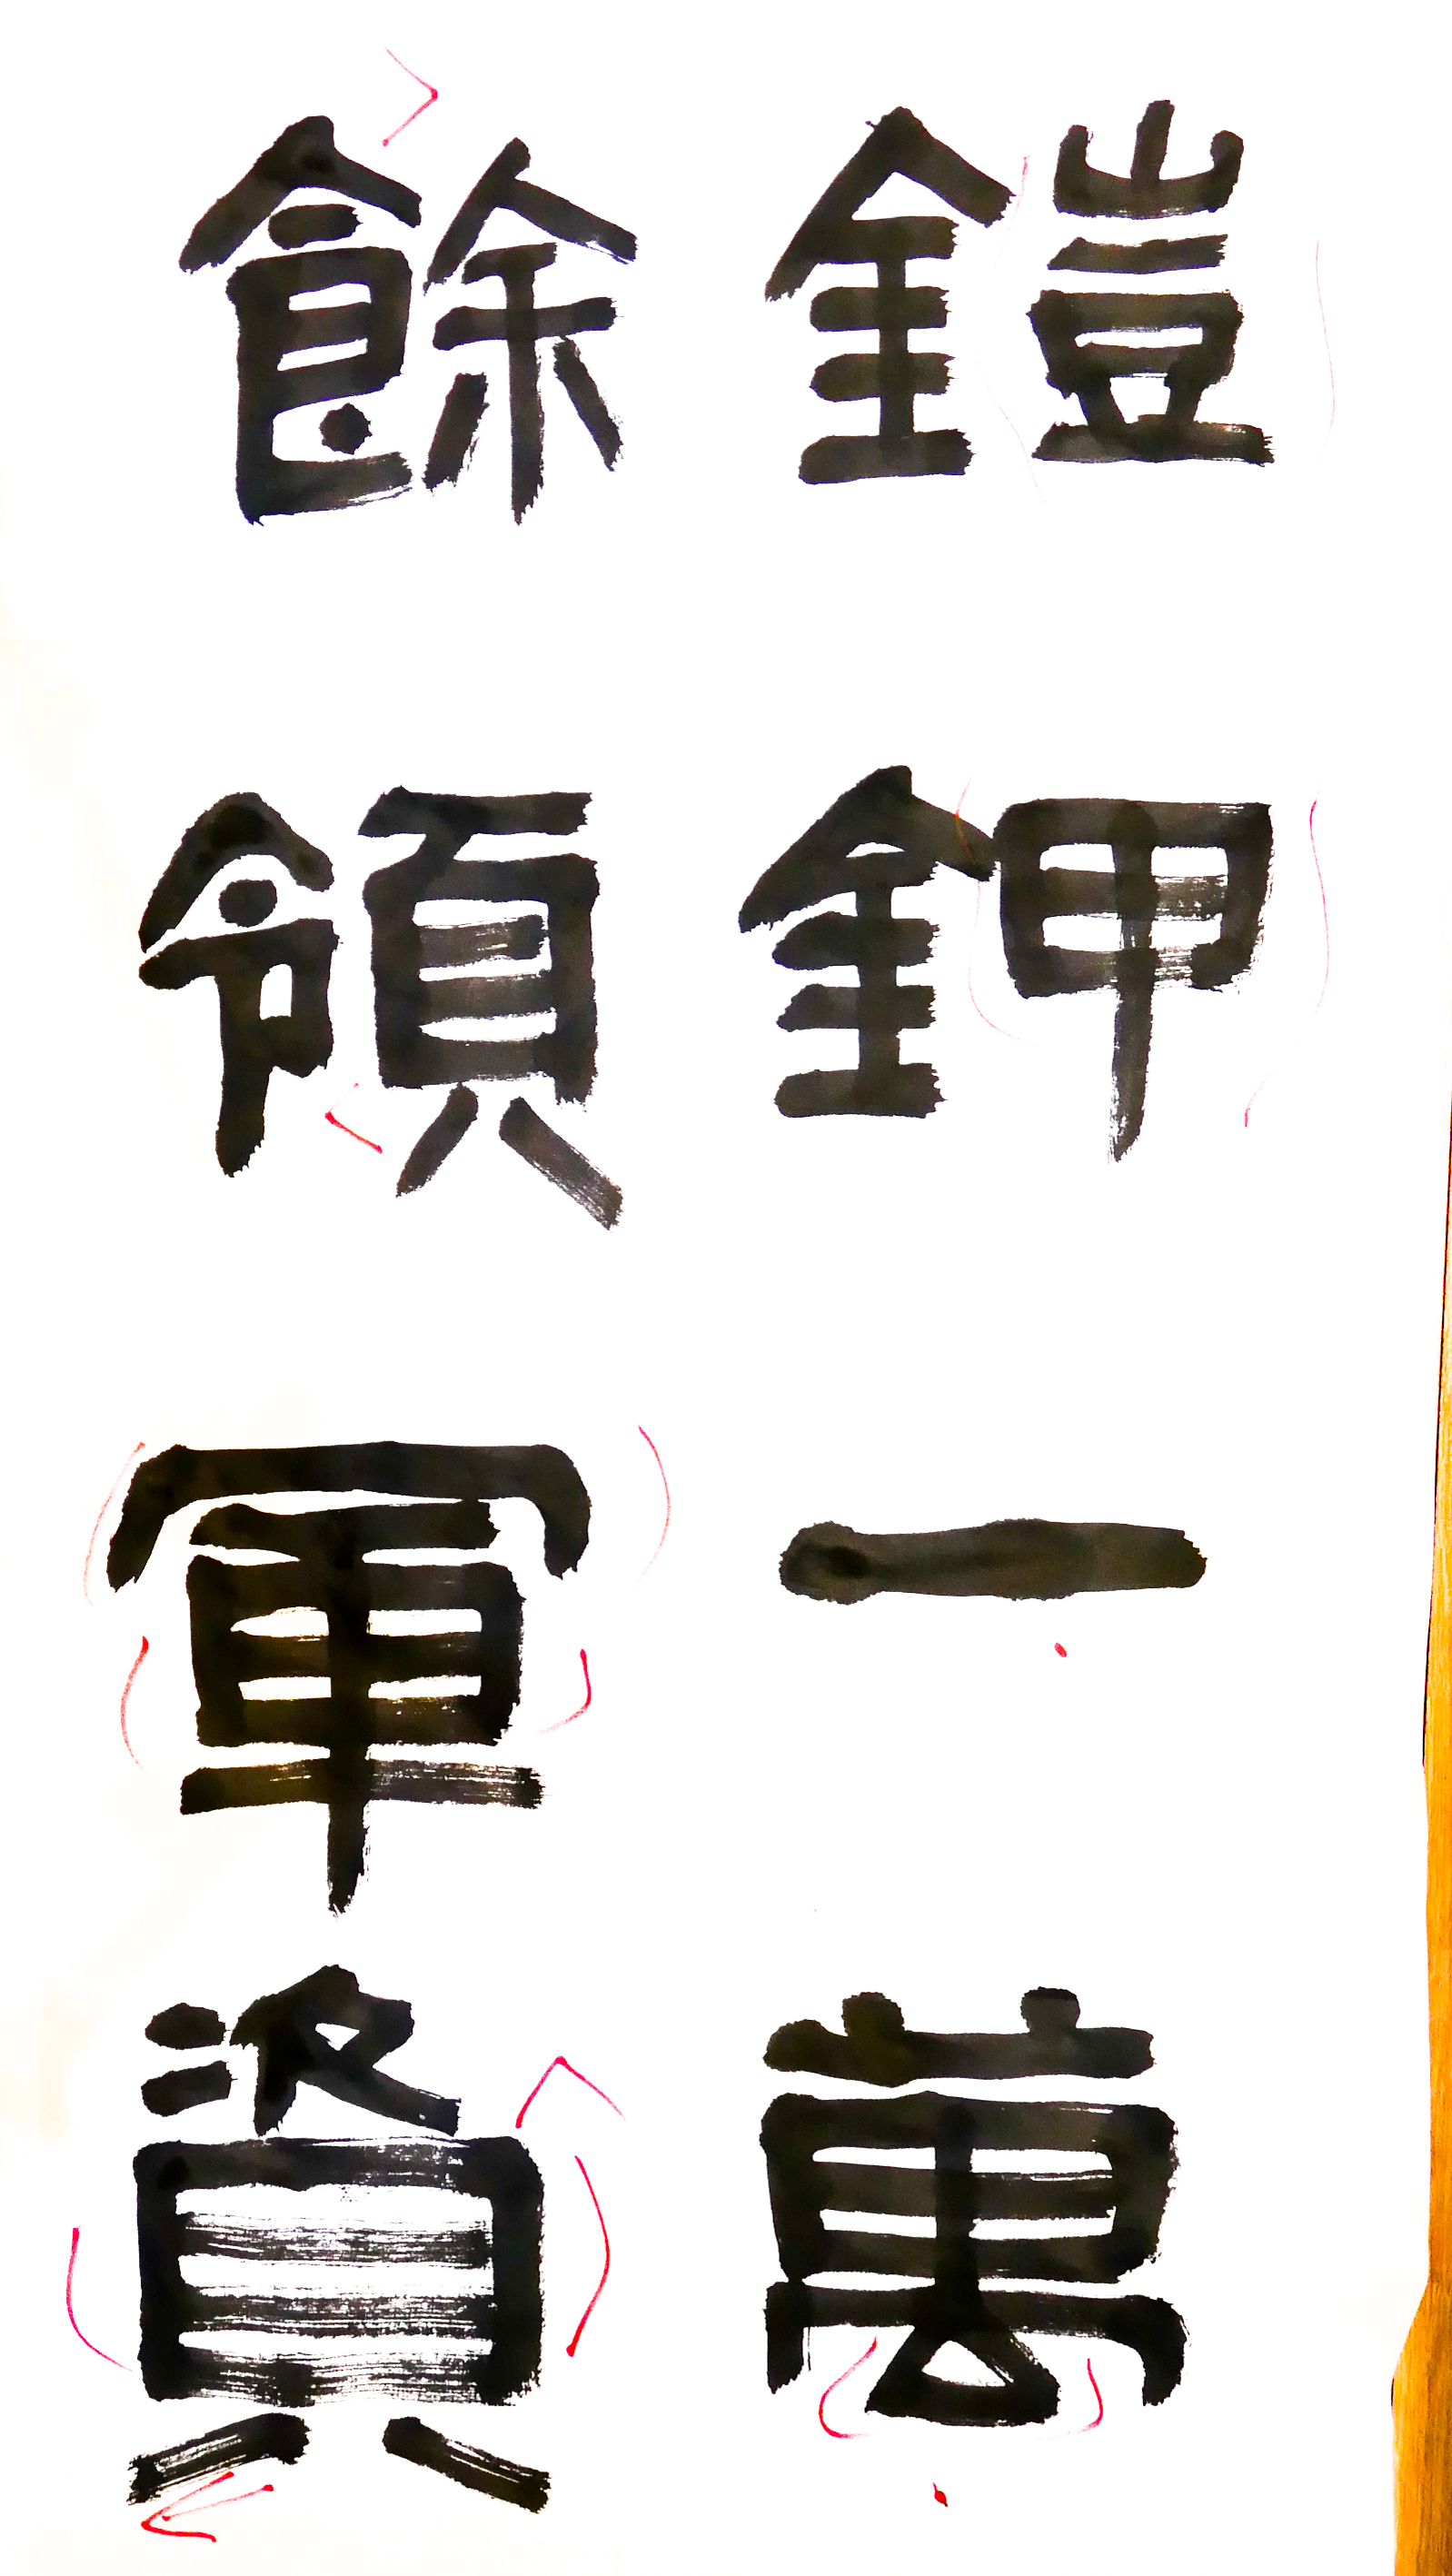 鎧鉀一萬
餘領軍資